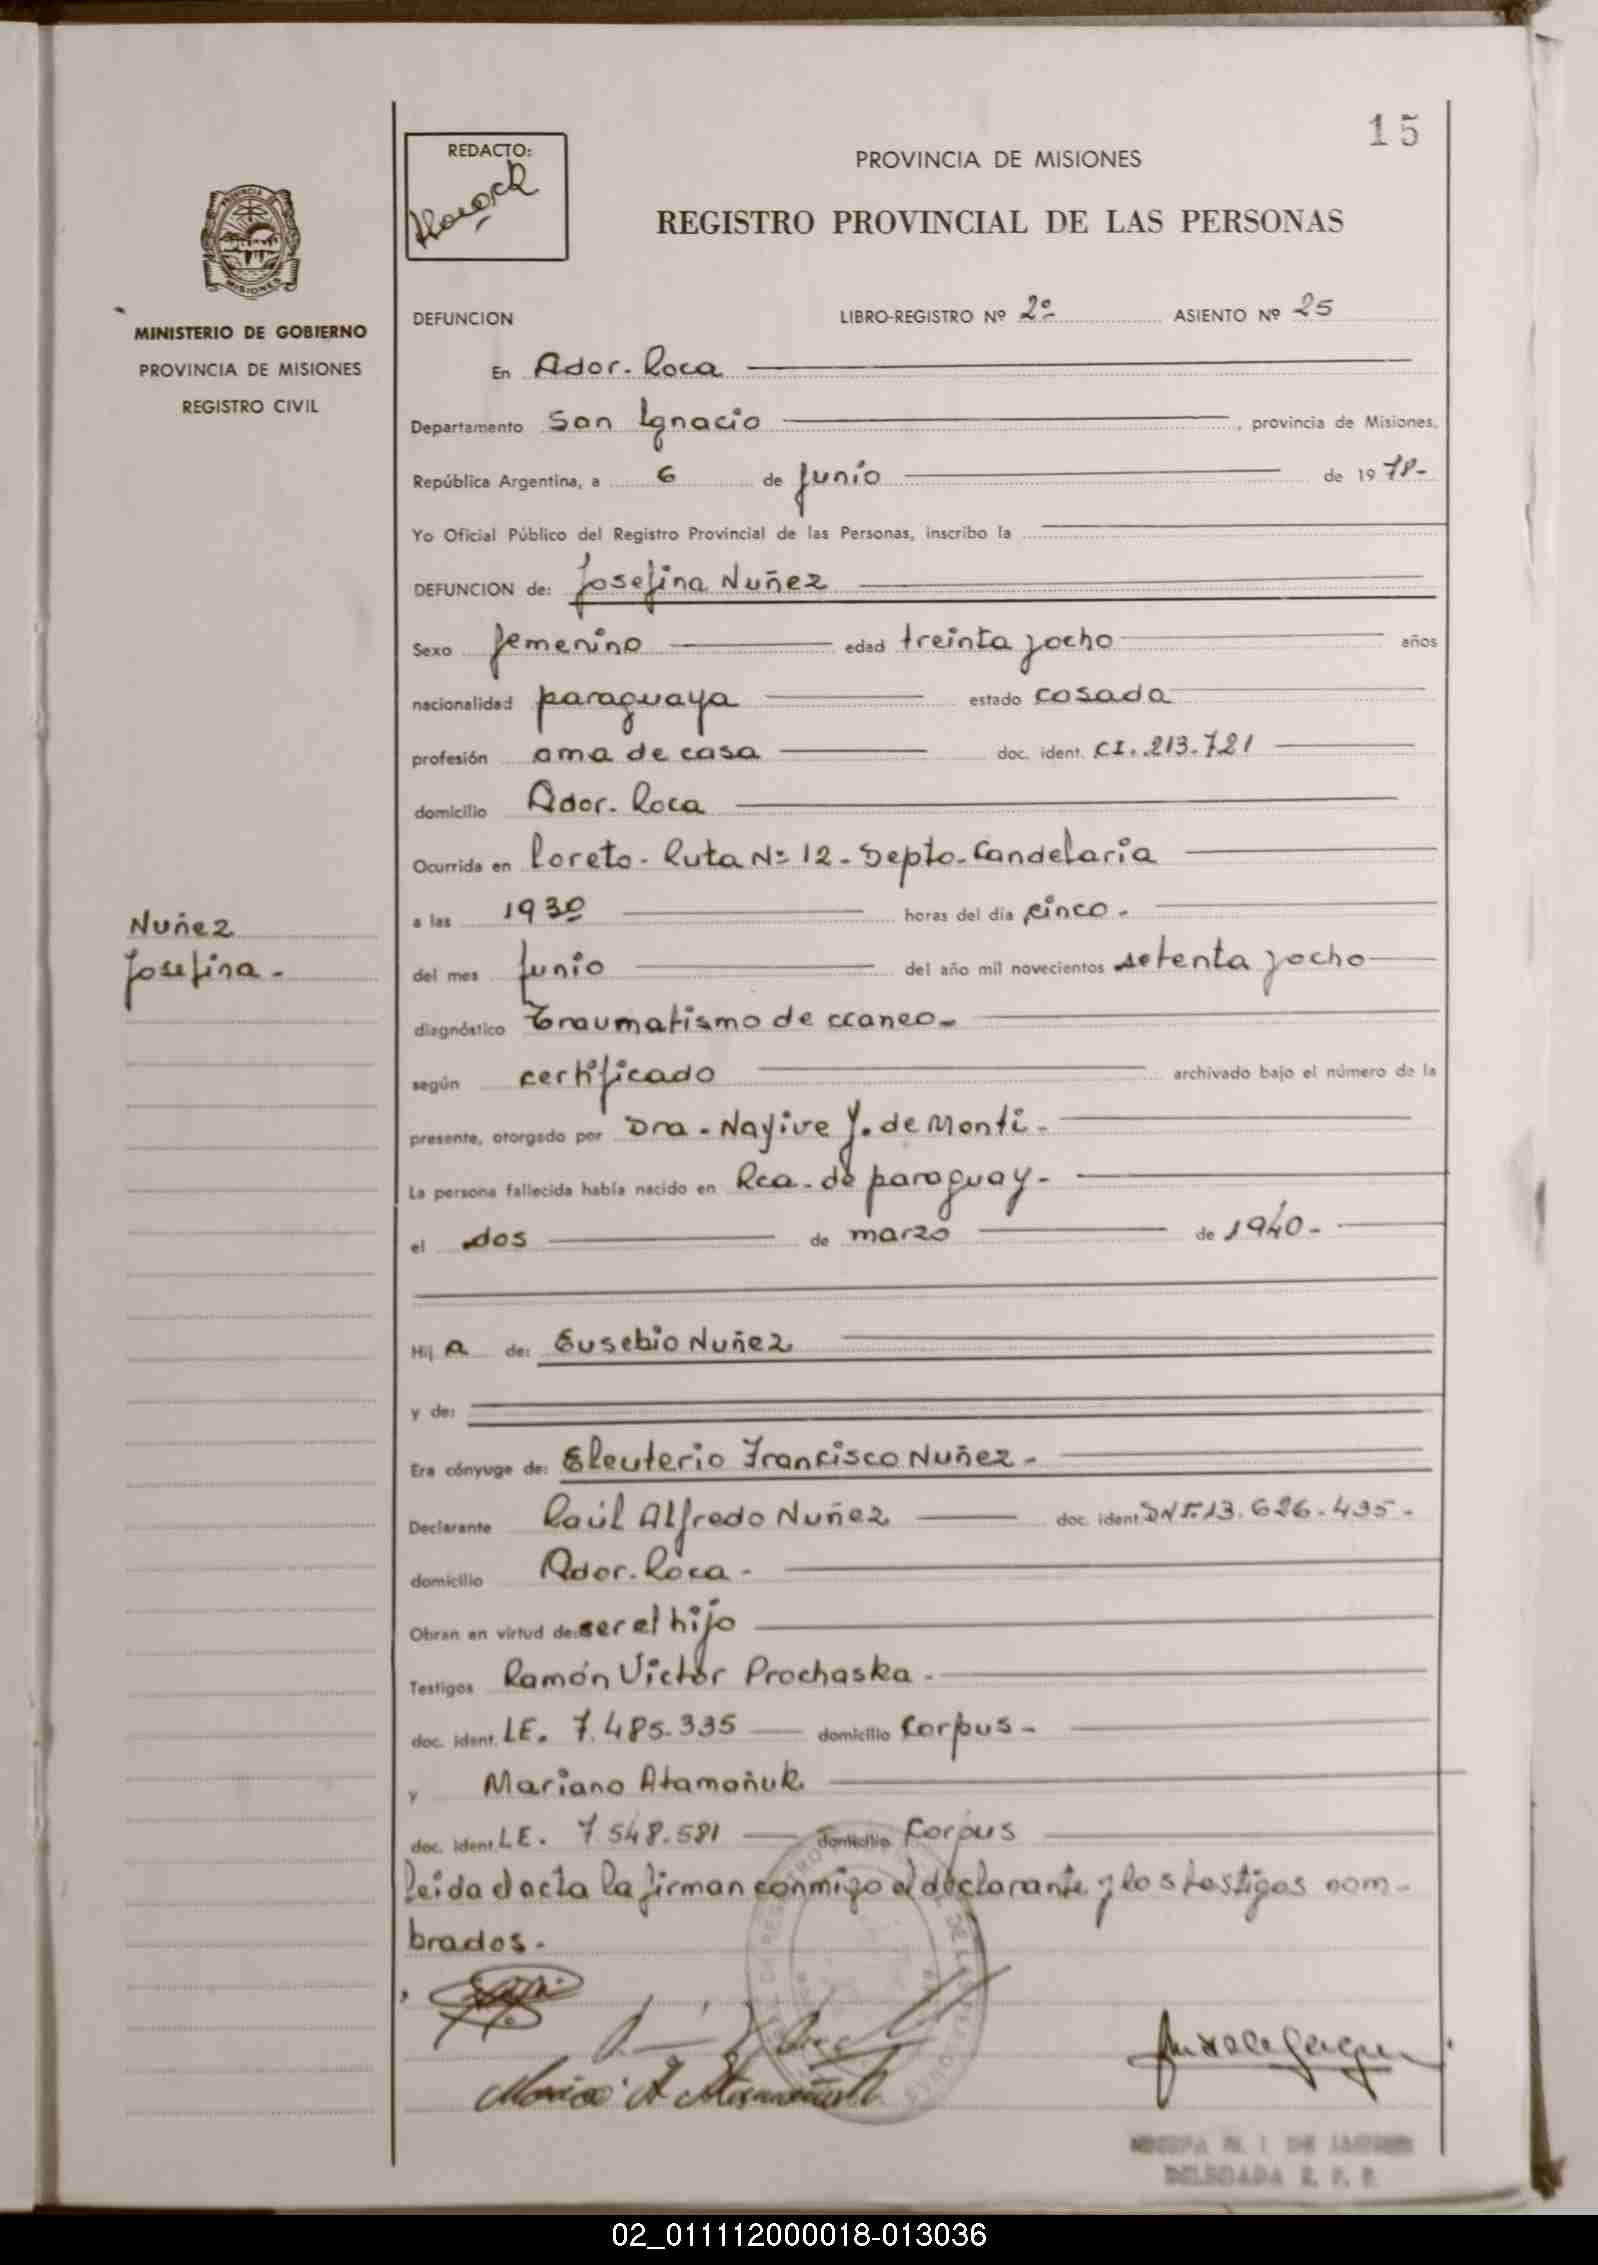 15
REDACTO:
PROVINCIA DE MISIONES
REGISTRO PROVINCIAL DE LAS PERSONAS
PROVINCIA
MISIONES
MINISTERIO DE GOBIERNO
PROVINCIA DE MISIONES
REGISTRO CIVIL
DEFUNCION LIBRO-REGISTRO Nº 2º- ASIENTO Nº 25
En Ador. Roca
Departamento San Ignacio, provincia de Misiones,
República Argentina, a 6 de junio de 1978-
Yo Oficial Público del Registro Provincial de las Personas, inscribo la
DEFUNCION de: Josefina Nuñez
Sexo femenino edad treinta yocho años
nacionalidad paraguaya estado casada
profesión ama de casa doc. ident. CI. 213.721
domicilio Ador. Roca
Ocurrida en Loreto- Ruta Nº 12- Depto. Candelaria
Nuñez
Josefina-
a las 1930 horas del día cinco.
del mes junio del año mil novecientos setenta yocho
diagnóstico Traumatismo de craneo-
según certificado archivado bajo el número de la
presente, otorgado por Dra. Nayive Y. de Monti-
La persona fallecida había nacido en Rca. de paraguay-
el dos de marzo de 1940-
Hij a de: Eusebio Nuñez
y de:
Era cónyuge de: Eleuterio Francisco Nuñez-
Declarante Raúl Alfredo Nuñez doc. ident. DNI. 13.626.435-
domicilio Ador. Roca-
Obran en virtud de: ser el hijo
Testigos Ramón Victor Prochaska-
doc. ident. LE. 7.485.335 domicilio Corpus-
y Mariano Atamañuk
doc. ident. LE. 7.548.581 domicilio Corpus
leida el acta la firman conmigo el declarante y los testigos nom-
brados-
DELEGADA R. P. P.
02_011112000018-013036